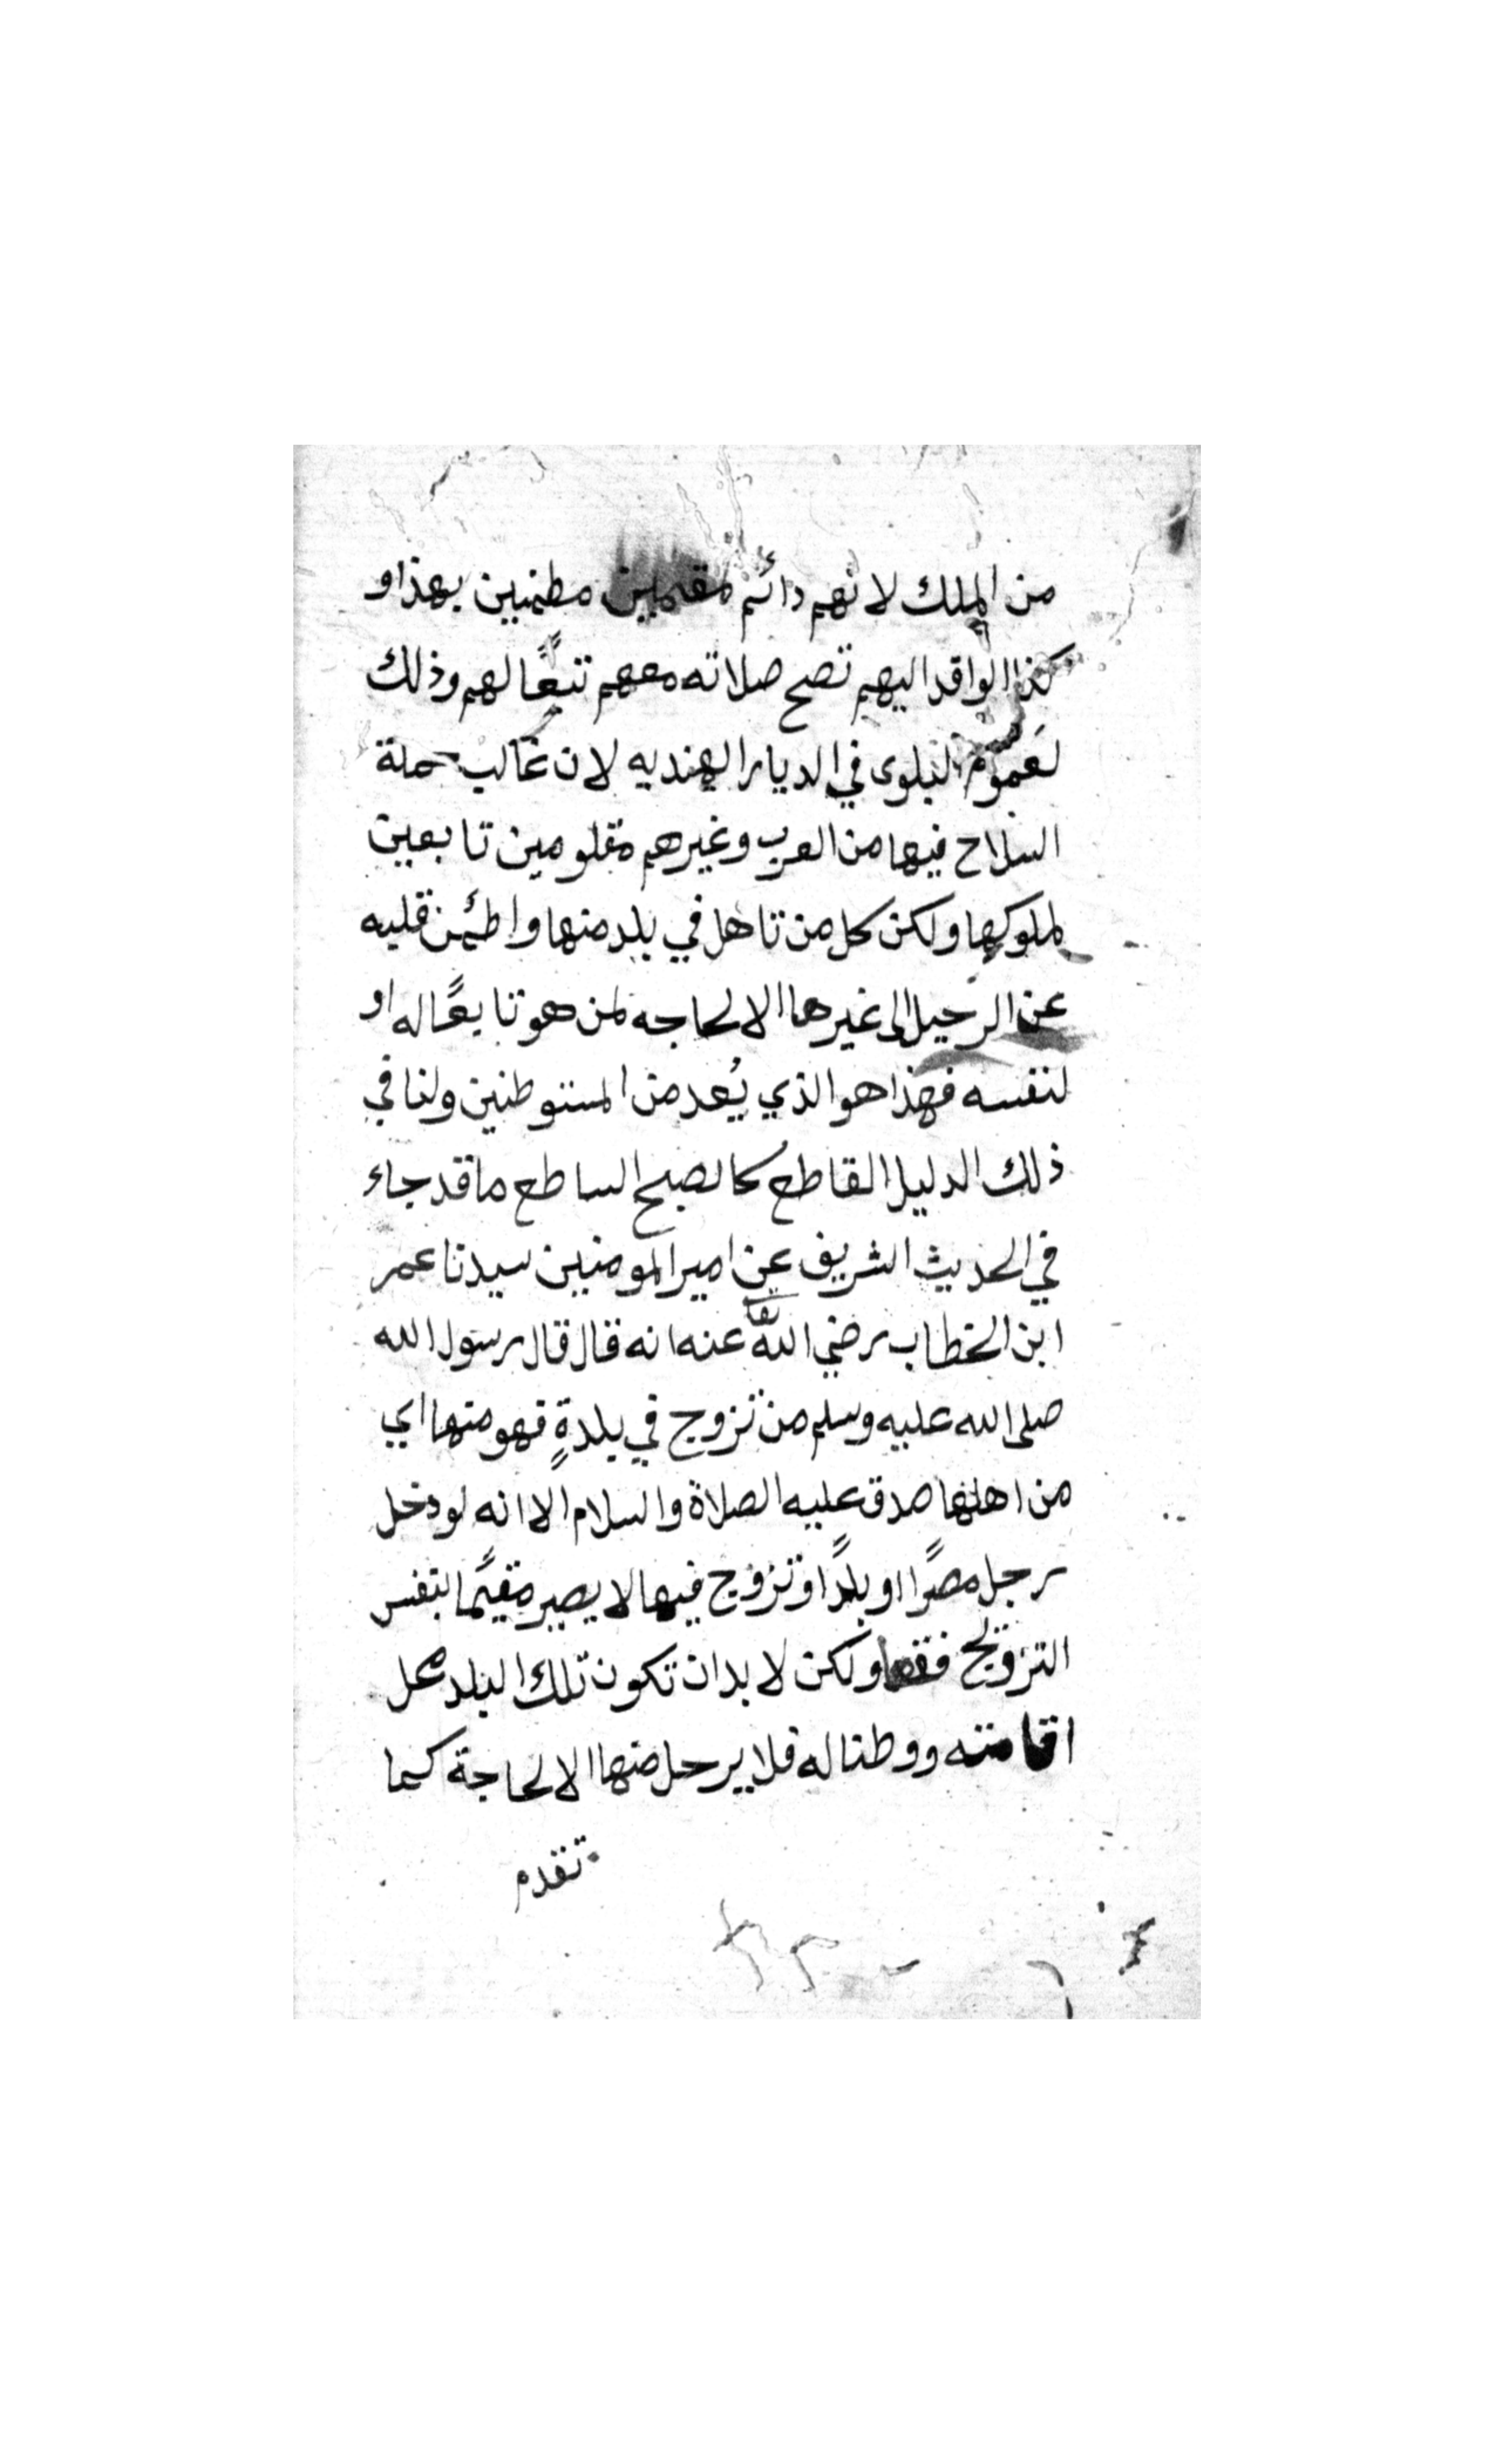 من الملك لانهم دائم مقيمين مطنبين بهذا و
كذا الوافد اليهم تصح صلاته معهم تبعًا لهم وذلك
لعموم البلوى في الديار الهنديه لان غالب حملة
السلاح فيها من العرب وغيرهم مقلومين تابعين
لملوكها ولكن كل من تاهل في بلد منها واطئمن قلبه
عن الرحيل الى غيرها الا لحاجه لمن هو تابعًا له او
لنفسه فهذا هو الذي يُعد من المستوطنين ولنا في
ذلك الدليل القاطع كالصبح الساطع ما قد جاء
في الحديث الشريف عن امير المومنين سيدنا عمر
ابن الخطاب رضي الله تعا عنه انه قال قال رسول الله
صلى الله عليه وسلم من تزوج في بلدةٍ فهو منها اي
من اهلها صدق عليه الصلاة والسلام الا انه لو دخل
رجل مصرًا او بلدًا وتزوج فيها لا يصير مقيمًا بنفس
التزويج فقط ولكن لا بد ان تكون تلك البلد محل
اقامته ووطنا له فلا يرحل منها الا لحاجة كما
تقدم